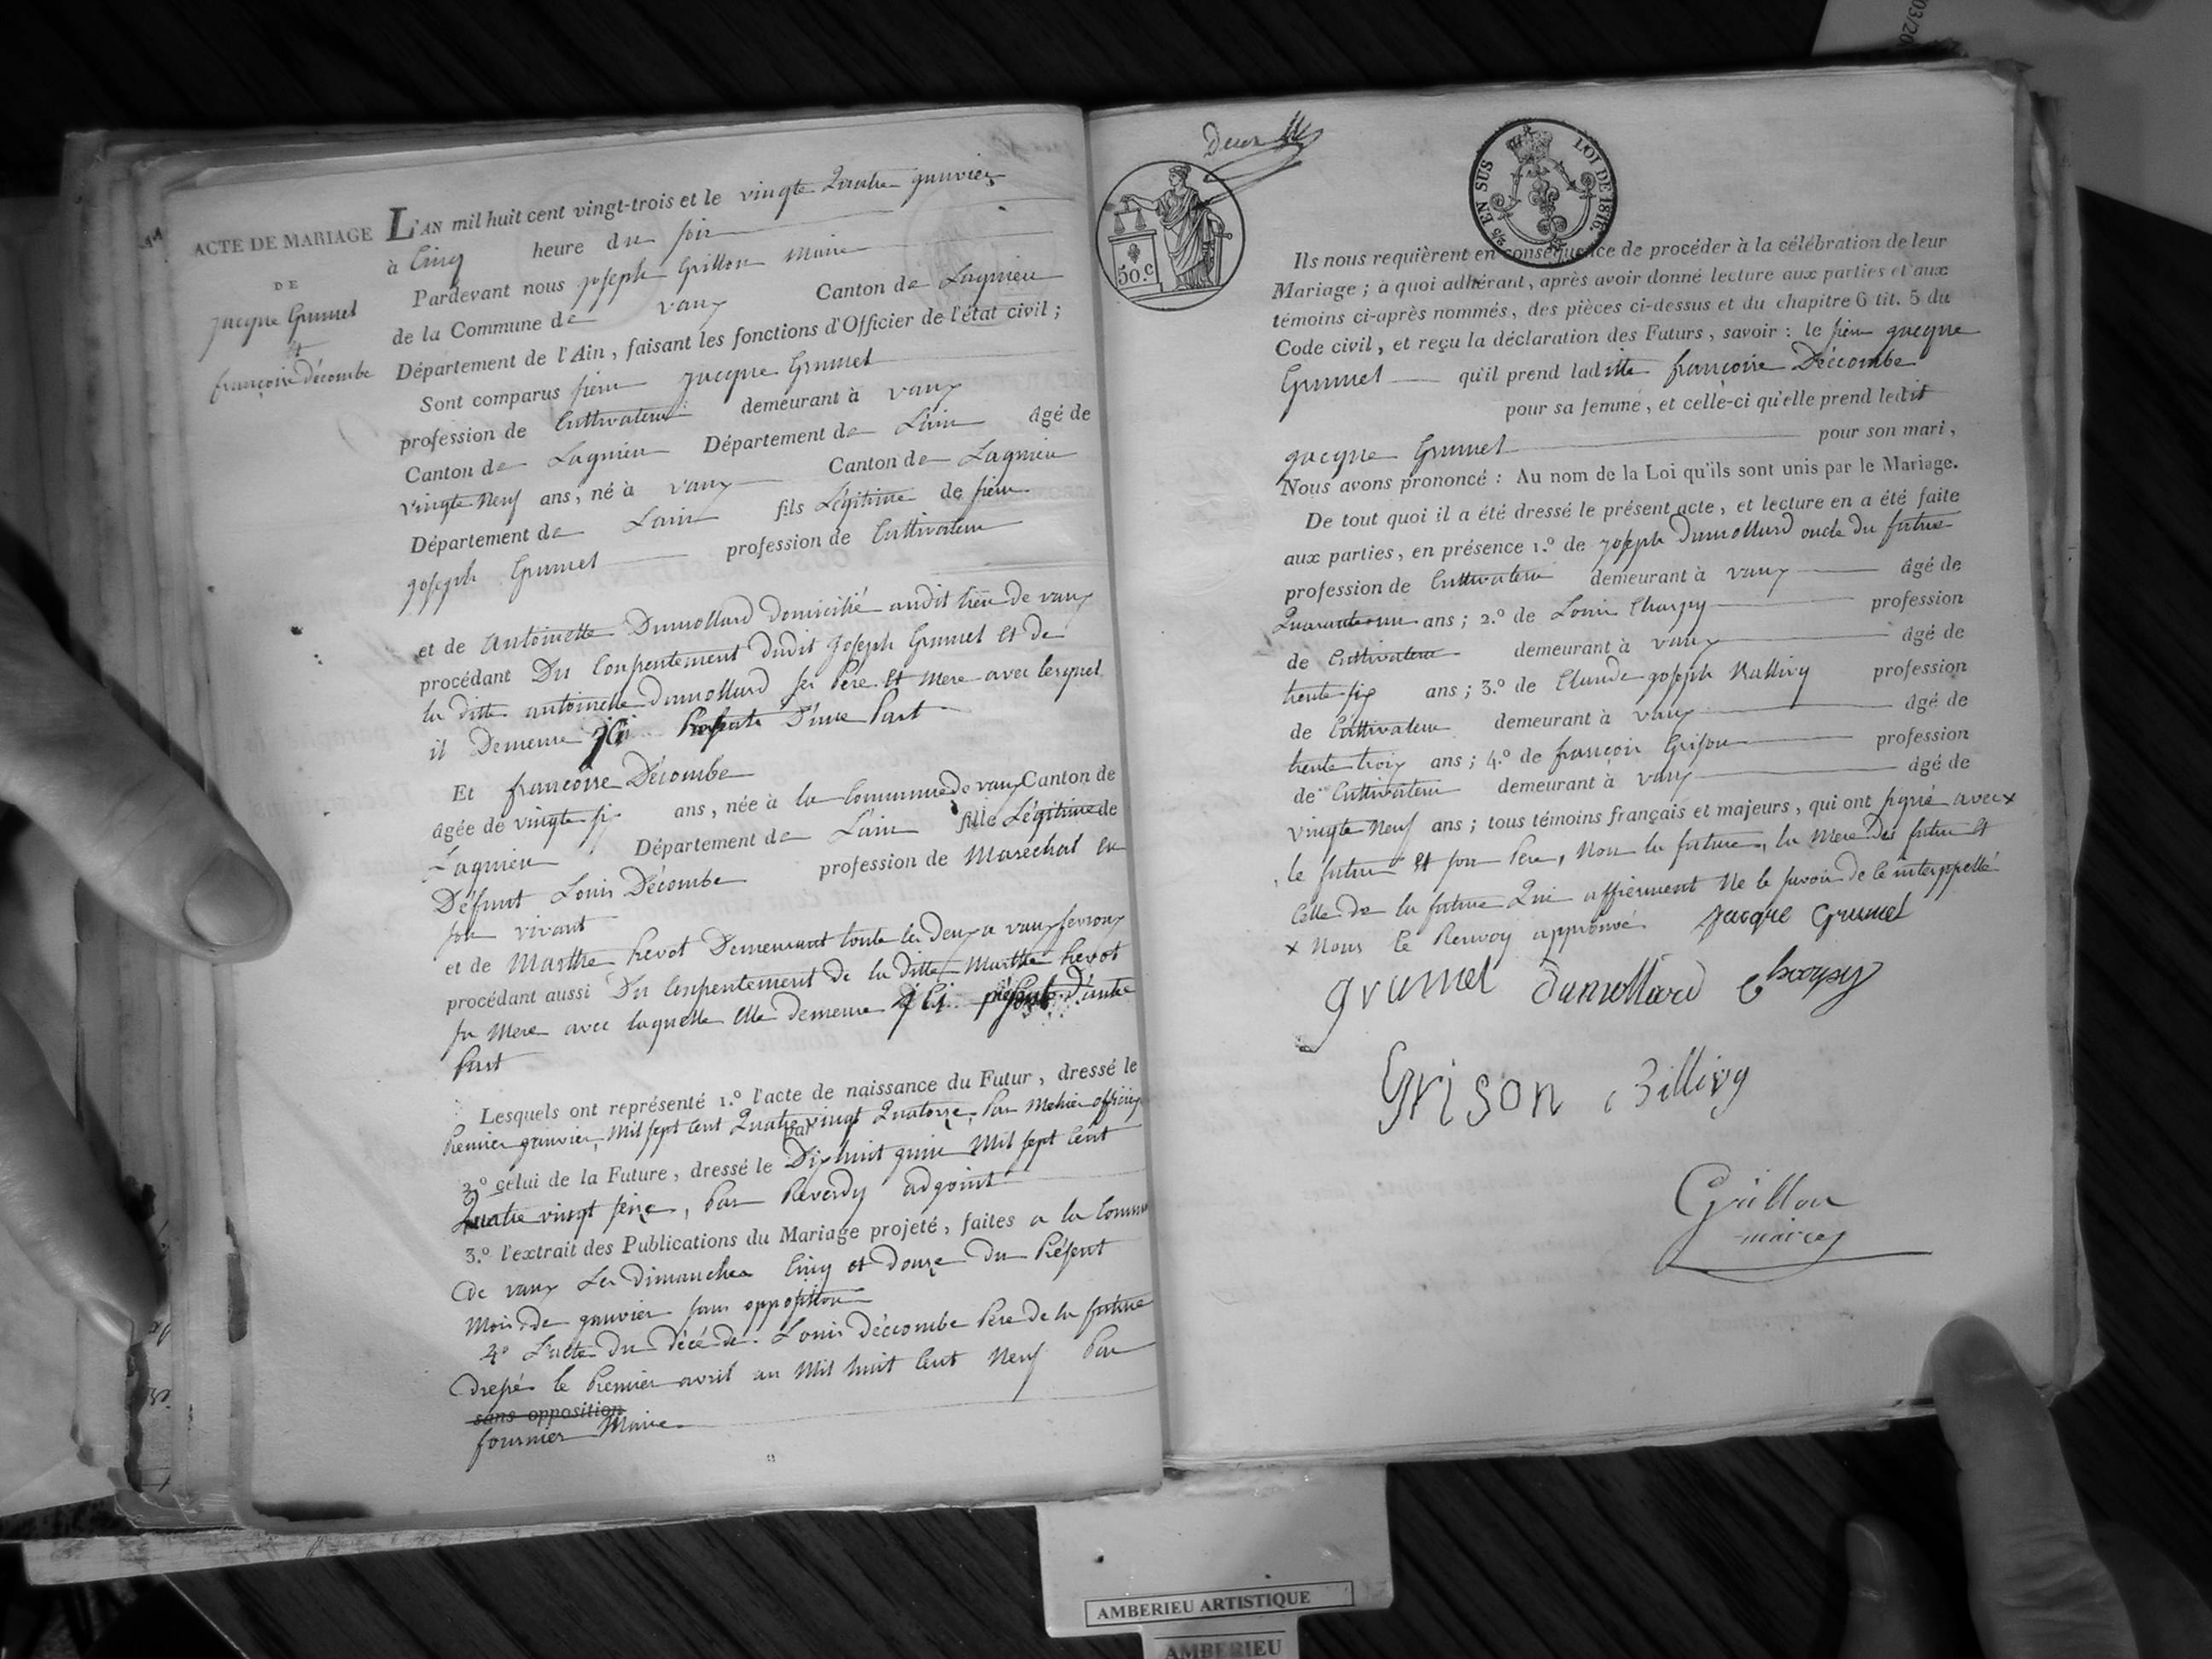 ACTE DE MARIAGE
DE
jacque Grumel
et
françoise décombe
L'AN mil huit cent vingt-trois et le vingte Quatre janvier
à Cinq heure du soir
Pardevant nous joseph Grillon Maire
de la Commune de vaux Canton de Lagnieu
Département de l'Ain, faisant les fonctions d'Officier de l'état civil;
Sont comparus sieur jacque Grumel
profession de Cultivateur demeurant à vaux
Canton de Lagnieu Département de L'ain âgé de
vingte Neuf ans, né à vaux Canton de Lagnieu
Département de Lain fils Légitime de sieur
joseph Grumel profession de Cultivateur
et de Antoinette Dumollard domicilié audit lieu de vaux
procédant Du Consentement dudit joseph Grumel et de
la ditte antoinette dumollard ses Père et Mere avec lesquel
il Demeure D'une Part
Et françoise Décombe
âgée de vingte six ans, née à la Commune de vaux Canton de
Lagnieu Département de L'ain fille Légitime de
Défunt Louis Décombe profession de Maréchal en
son vivant
et de Marthe hevot Demeurant toute les deux a vaux fevroux
procédant aussi Du Consentement de la ditte Marthe hevot
sa Mere avec laquelle Elle demeure d'autre
Part
Lesquels ont représenté 1.° l'acte de naissance du Futur, dressé le
Premier janvier Mil sept Cent Quatre vingt Quatorze, Par officier
par
2.° celui de la Future, dressé le Dix huit juin Mil sept Cent
Quatre vingt seize, Par Reverdy adjoint
3.° l'extrait des Publications du Mariage projeté, faites a la Commu
de vaux Les dimanches Cinq et douze du Présent
Mois de janvier sans opposition
4° L'acte du décé de Louis déccombe Pere de la future
dressé le Premier avril an Mil huit Cent Neuf Par
sans opposition
fournier Maire
Deux
50.c
25 EN SUS LOI DE 1816.
Ils nous requièrent en conséquence de procéder à la célébration de leur
Mariage; à quoi adhérant, après avoir donné lecture aux parties et aux
témoins ci-après nommés, des pièces ci-dessus et du chapitre 6 tit. 5 du
Code civil, et reçu la déclaration des Futurs, savoir: le sieur jacque
Grumel qu'il prend laditte françoise Décombe
pour sa femme, et celle-ci qu'elle prend ledit
jacque Grumel pour son mari,
Nous avons prononcé: Au nom de la Loi qu'ils sont unis par le Mariage.
De tout quoi il a été dressé le présent acte, et lecture en a été faite
aux parties, en présence 1.° de joseph Dumollard oncle du future
profession de Cultivateur demeurant à vaux âgé de
Quarante un ans; 2.° de Louis Charpy profession
de Cultivateur demeurant à vaux âgé de
trente six ans; 3.° de Claude joseph profession
de Cultivateur demeurant à vaux âgé de
trente trois ans; 4.° de françois Grison profession
de Cultivateur demeurant à vaux âgé de
vingte Neuf ans; tous témoins français et majeurs, qui ont signé avec x
le future et son Pere, Non la future, la Mere du futur et
Celle de la future Qui affirment Ne le savoir de ce interppellé
x Nous Le Renvoy approuvé jacque Grumel
grumel dumollard Charpy
Grison Billivy
Grillon
maire
AMBERIEU ARTISTIQUE
AMBERIEU
03/20